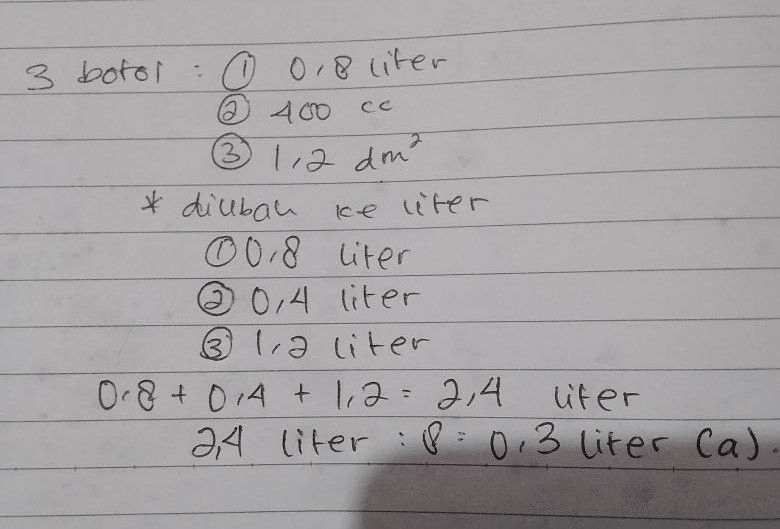 3 botol : ① 0,8 liter
② 400 cc
③ 1,2 dm²
* diubah ke liter
① 0,8 liter
② 0,4 liter
③ 1,2 liter
0,8 + 0,4 + 1,2 = 2,4 liter
2,4 liter : 8 = 0,3 liter (a).